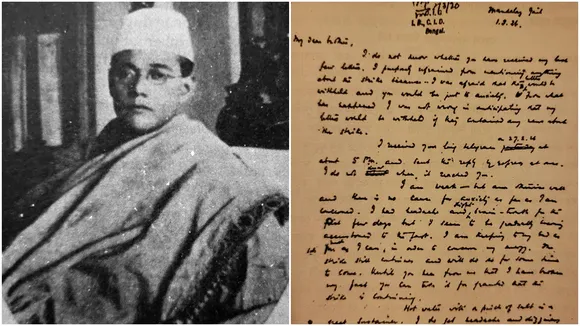 Mandalay Jail
1.3.26.
My dear brother,
I do not know whether you have received my last
few letters. I purposely refrained from mentioning anything
about the strike because I was afraid that they would be
withheld and you would be put to anxiety. from what
has happened I was not wrong in anticipating that my
letters would be withheld if they contained any news about
the strike.
I received your long telegram on 27.2.26 at
about 5 P.m. and sent the reply by express at once.
I do not know when it reached you.
I am weak but am
and there is no cause for anxiety as far as I am
concerned. I had headache and for the
first few days but I seem to be gradually
accustoming to the fast. I am keeping my bed as
far as I can, in order to conserve my energy. The
strike still continues and will do so for some time
to come. Until you hear from us that I have broken
my fast you can take it for granted that the
strike is continuing.
Hot water with a pinch of salt is a
great sustainer. I do get headache and